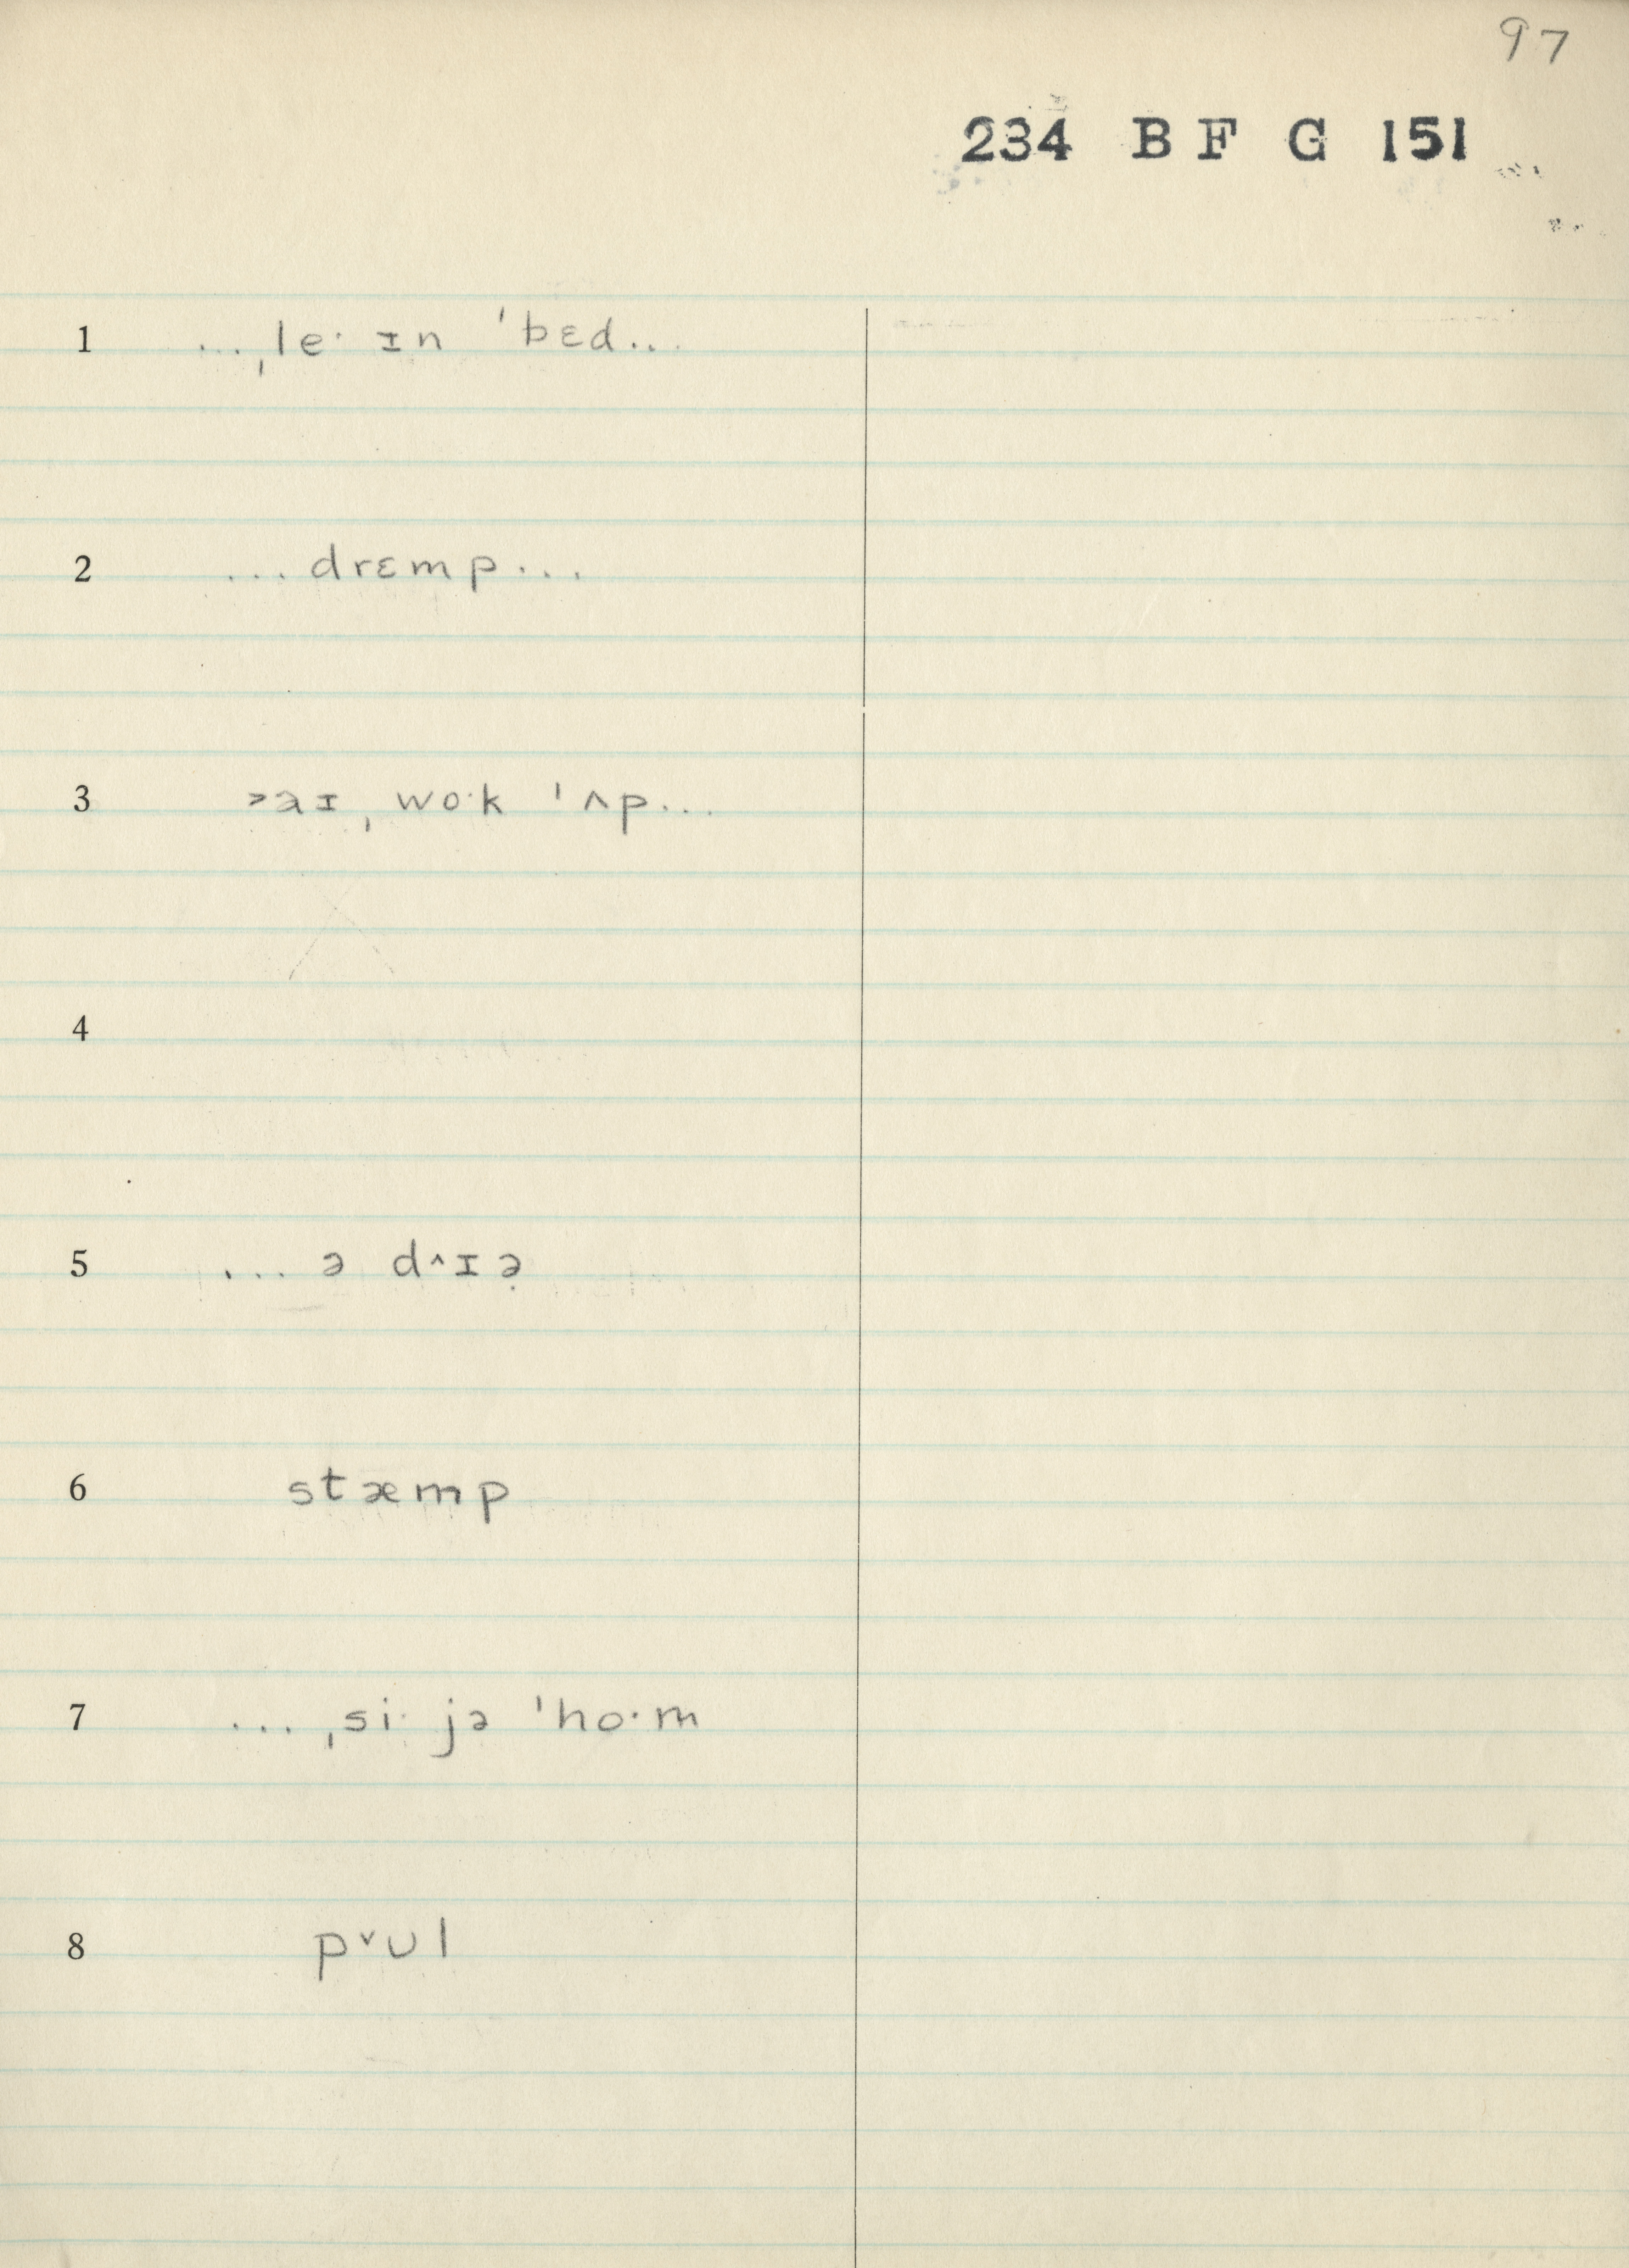 97
234 B F G 151
1 ...ˌle· ɪn ˈbɛd...
2 ...drɛmp...
3 ˃aɪ ˌwo·k ˈʌp...
4
5 ... ə d˄ɪə̣
6 stæmp
7 ... ˌsi· jə ˈho·m
8 p˅ʊl